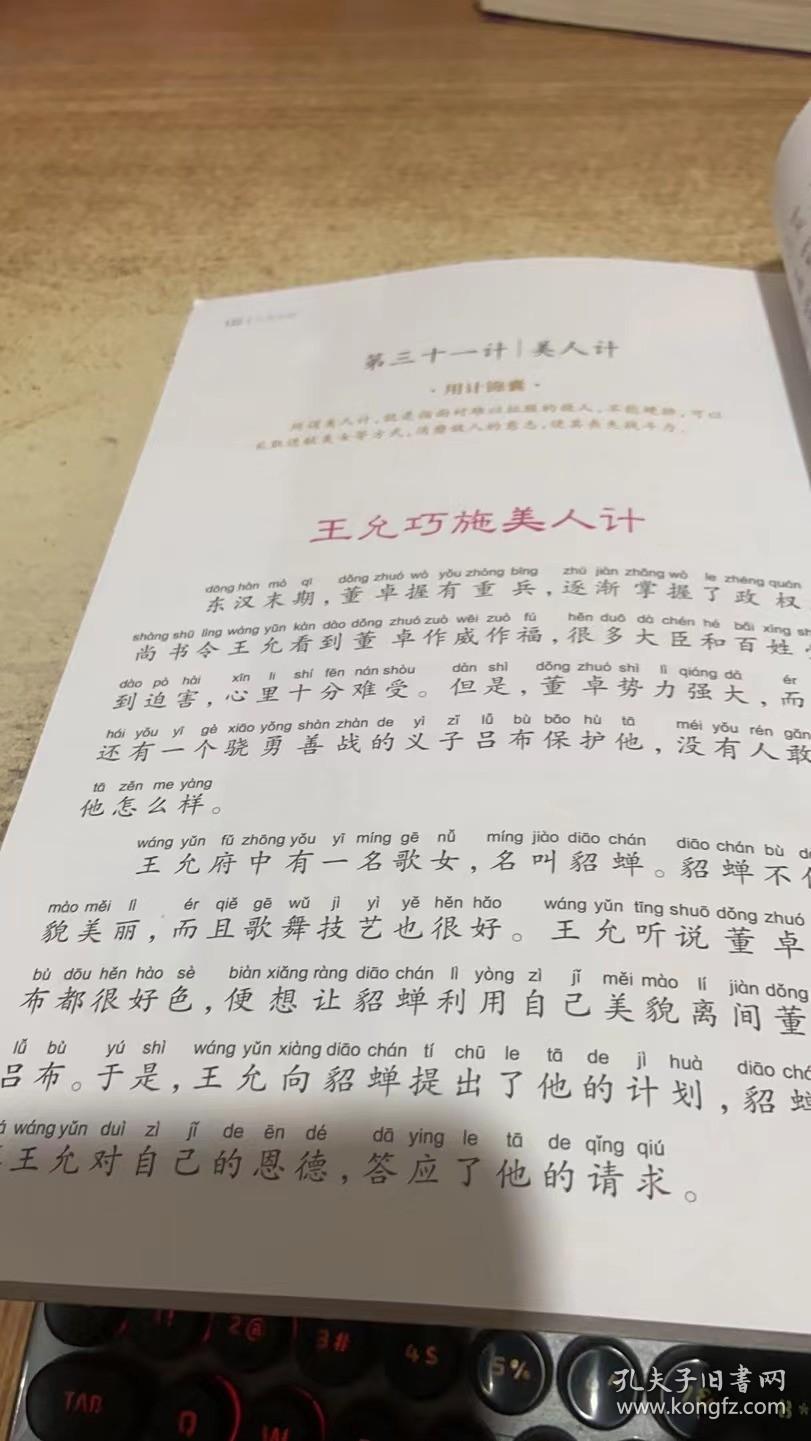 第三十一计|美人计
·用计锦囊·
所谓美人计，就是指面对难以征服的敌人，不能硬拼，可以
采取进献美女等方式，消磨敌人的意志，使其丧失战斗力。
王允巧施美人计
dōng hàn mò qī dǒng zhuó wò yǒu zhòng bīng zhú jiàn zhǎng wò le zhèng quán
东汉末期，董卓握有重兵，逐渐掌握了政权
shàng shū lìng wáng yǔn kàn dào dǒng zhuó zuò wēi zuò fú hěn duō dà chén hé bǎi xìng
尚书令王允看到董卓作威作福，很多大臣和百姓
dào pò hài xīn li shí fēn nán shòu dàn shì dǒng zhuó shì lì qiáng dà ér
到迫害，心里十分难受。但是，董卓势力强大，而
hái yǒu yī gè xiāo yǒng shàn zhàn de yì zǐ lǚ bù bǎo hù tā méi yǒu rén gǎn
还有一个骁勇善战的义子吕布保护他，没有人敢
tā zěn me yàng
他怎么样。
wáng yǔn fǔ zhōng yǒu yī míng gē nǚ míng jiào diāo chán diāo chán bù
王允府中有一名歌女，名叫貂蝉。貂蝉不
mào měi lì ér qiě gē wǔ jì yì yě hěn hǎo wáng yǔn tīng shuō dǒng zhuó
貌美丽，而且歌舞技艺也很好。王允听说董卓
bù dōu hěn hào sè biàn xiǎng ràng diāo chán lì yòng zì jǐ měi mào lí jiàn dǒng
布都很好色，便想让貂蝉利用自己美貌离间董
lǚ bù yú shì wáng yǔn xiàng diāo chán tí chū le tā de jì huà diāo
吕布。于是，王允向貂蝉提出了他的计划，貂蝉
wáng yǔn duì zì jǐ de ēn dé dā ying le tā de qǐng qiú
王允对自己的恩德，答应了他的请求。
TAB
2@
3#
4$
5%
Q
W
孔夫子旧书网
www.kongfz.com